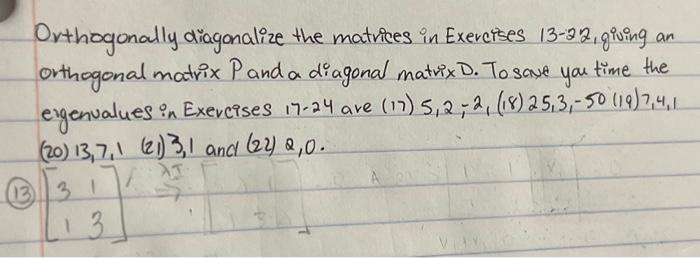 Orthogonally diagonalize the matrices in Exercises 13-22, giving an
orthogonal matrix P and a diagonal matrix D. To save you time the
eigenvalues in Exercises 17-24 are (17) 5,2,-2, (18) 25,3,-50 (19) 7,4,1
(20) 13,7,1 (21) 3,1 and (22) 2,0.
(13) [3 1
1 3]